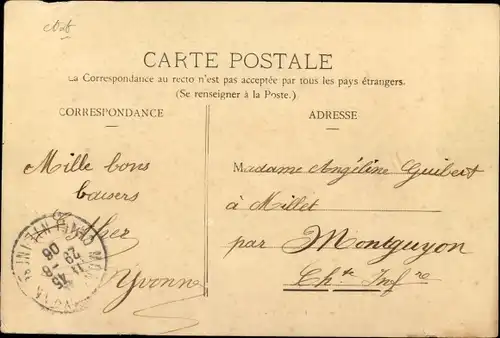 CARTE POSTALE
La Correspondance au recto n'est pas acceptée par tous les pays étrangers.
(Se renseigner à la Poste.)
CORRESPONDANCE
ADRESSE
Mille bons
baisers
Yvonne
Madame Angéline Guibert
à Millet
par Montguyon
Chte Infre